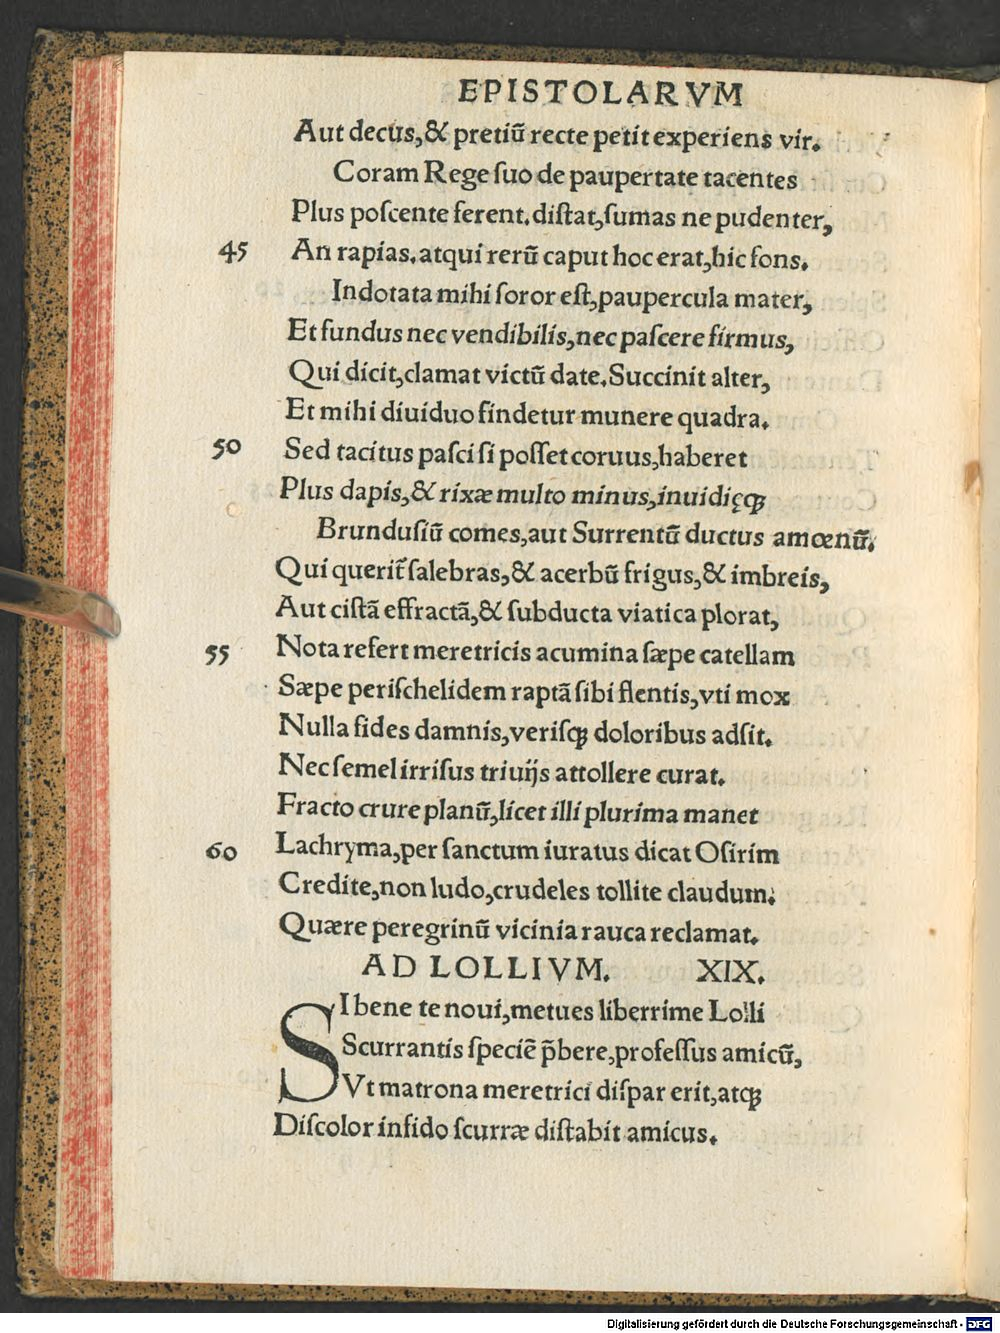 EPISTOLARVM
Aut decus,& pretiū recte petit experiens vir.
Coram Rege ſuo de paupertate tacentes
Plus poſcente ferent.diſtat,ſumas ne pudenter,
45 An rapias.atqui rerū caput hoc erat,hic fons.
Indotata mihi ſoror eſt,paupercula mater,
Et fundus nec vendibilis,nec paſcere firmus,
Qui dicit,clamat victū date.Succinit alter,
Et mihi diuiduo findetur munere quadra.
50 Sed tacitus paſci ſi poſſet coruus,haberet
Plus dapis,& rixæ multo minus,inuidięqꝫ
Brunduſiū comes,aut Surrentū ductus amœnū.
Qui querit̃ ſalebras,& acerbū frigus,& imbreis,
Aut ciſtā effractā,& ſubducta viatica plorat,
55 Nota refert meretricis acumina ſæpe catellam
Sæpe periſchelidem raptā ſibi flentis,vti mox
Nulla fides damnis,veriſqꝫ doloribus adſit.
Nec ſemel irriſus triuijs attollere curat.
Fracto crure planū,licet illi plurima manet
60 Lachryma,per ſanctum iuratus dicat Oſirim
Credite,non ludo,crudeles tollite claudum.
Quære peregrinū vicinia rauca reclamat.
AD LOLLIVM. XIX.
SI bene te noui,metues liberrime Lolli
Scurrantis ſpeciē p̄bere,profeſſus amicū,
Vt matrona meretrici diſpar erit,atqꝫ
Diſcolor infido ſcurræ diſtabit amicus.
Digitalisierung gefördert durch die Deutsche Forschungsgemeinschaft - DFG